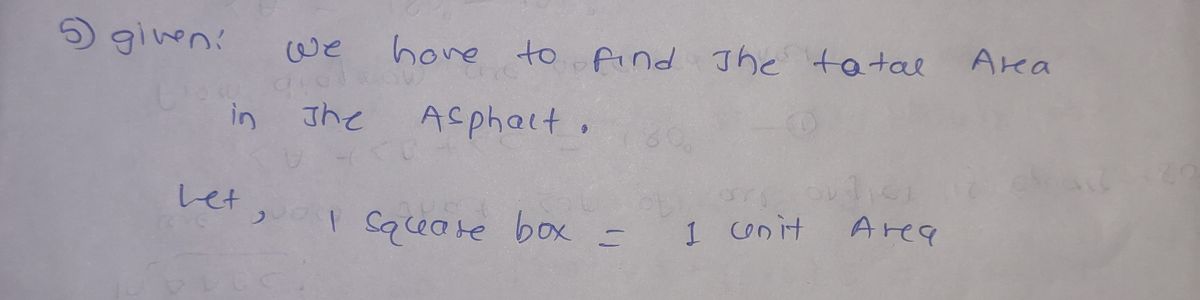 5) given: we have to find The total Area
in The Asphalt.
Let, 1 square box = 1 unit Area